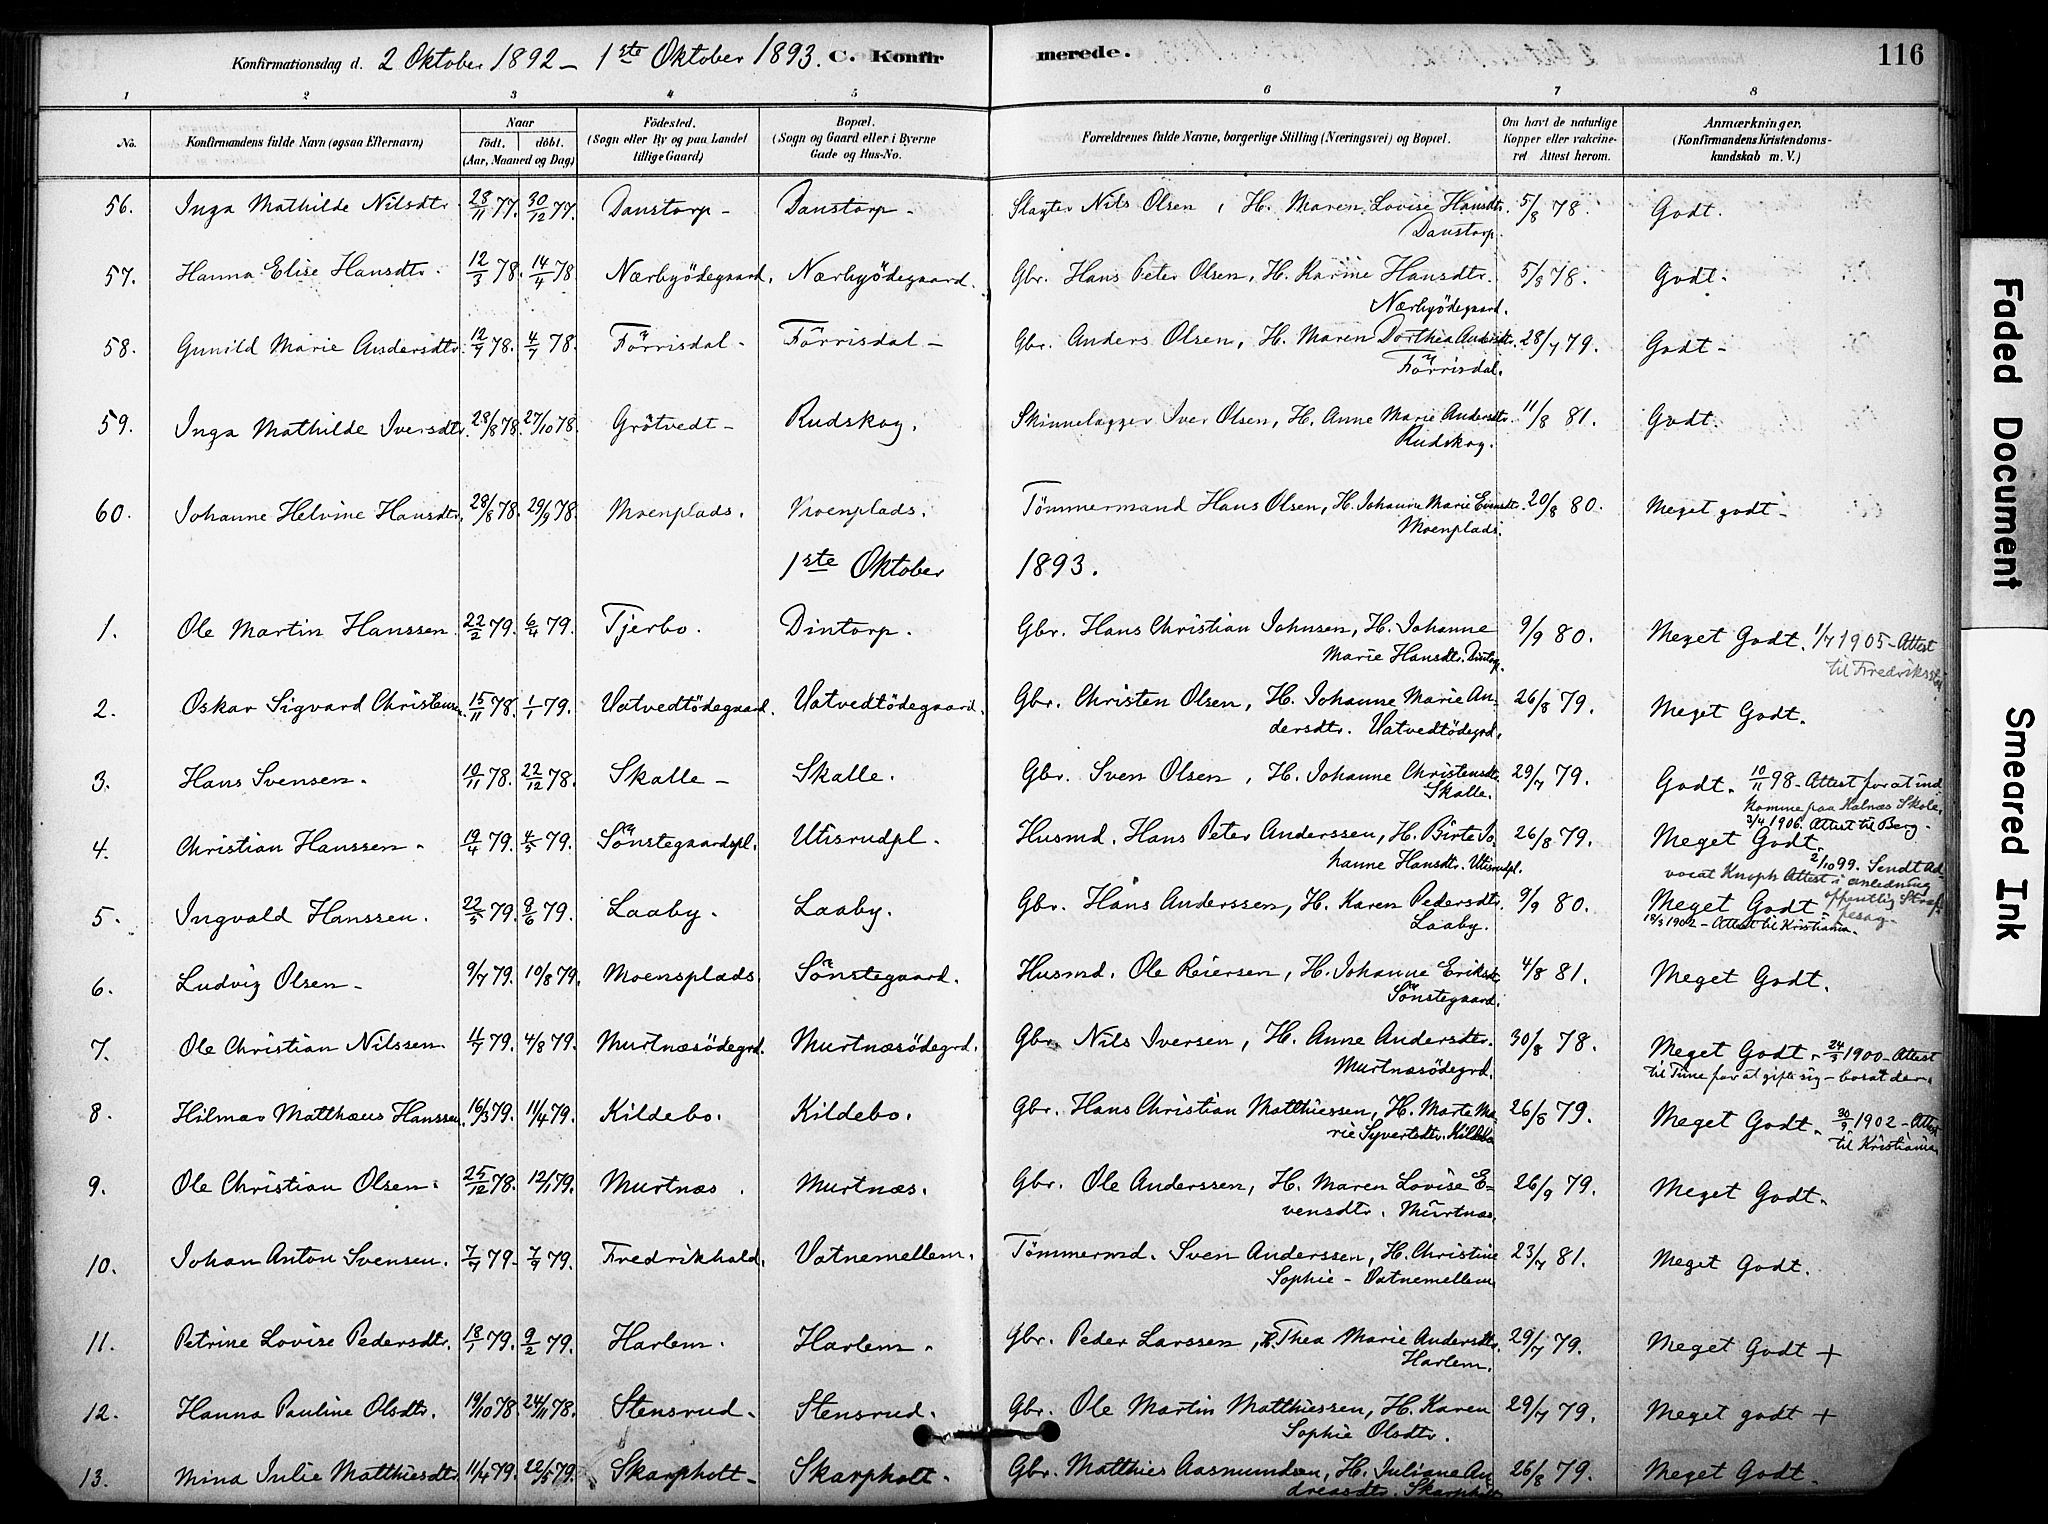 Konfirmationsdag d. 2 Oktober 1892 – 1ste Oktober 1893. C. Konfirmerede. 116
1 2 3 4 5 6 7 8
No. Konfirmandens fulde Navn (ogsaa Efternavn) Naar födt. döbt. (Aar, Maaned og Dag) Födested. (Sogn eller By og paa Landet tillige Gaard) Bopæl. (Sogn og Gaard eller i Byerne Gade og Hus-No. Forældrenes fulde Navne, borgerlige Stilling (Næringsvei) og Bopæl. Om havt de naturlige Kopper eller vakcineret Attest herom. Anmærkninger. (Konfirmandens Kristendomskundskab m. V.)
56. Inga Mathilde Nilsdtr. 28/11 77. 30/12 77. Danstorp – Danstorp – Slagter Nils Olsen, H. Maren Lovise Hansdtr. 5/8 78. Godt.
Danstorp.
57. Hanna Elise Hansdtr. 12/3 78. 14/4 78. Nærbyödegaard. Nærbyödegaard. Gbr. Hans Peter Olsen, H. Karine Hansdtr. 5/8 78. Godt.
Nærbyödegaard.
58. Gunild Marie Andersdtr. 78. 78. Förrisdal – Förrisdal – Gbr. Anders Olsen, H. Maren Dorthea Andersdtr. 28/7 79. Godt –
Förrisdal.
59. Inga Mathilde Iversdtr. 28/8 78. 27/10 78. Grötvedt – Rudskog. Skinnelægger Iver Olsen, H. Anne Marie Andersdtr. 11/8 81. Godt.
Rudskog.
60. Johanne Helvine Hansdtr. 28/8 78. 29/9 78. Moenplads. Moenplads. Tömmermand Hans Olsen, H. Johanne Marie Evensdtr. 20/8 80. Meget godt –
Moenplads.
1ste Oktober 1893.
1. Ole Martin Hanssen. 22/2 79. 6/4 79. Tjerbo. Dintorp. Gbr. Hans Christian Johnsen, H. Johanne 9/9 80. Meget Godt. 1/7 1905 – Attest
Marie Hansdtr. Dintorp. til Fredriksstad
2. Oskar Sigvard Christensen. 15/11 78. 1/1 79. Vatvedtödegaard. Vatvedtödegaard. Gbr. Christen Olsen, H. Johanne Marie An- 26/8 79. Meget Godt.
dersdtr. Vatvedtödegrd.
3. Hans Svensen. 10/11 78. 22/12 78. Skalle – Skalle. Gbr. Sven Olsen, H. Johanne Christensdtr. 29/7 79. Godt. 10/11 98 – Attest for at ind
Skalle. komme paa Kalnæs Skole.
3/4 1906. Attest til Berg –
4. Christian Hanssen – 19/4 79. 4/5 79. Sönstegaardspl. Utisrudpl. Husmd. Hans Peter Anderssen, H. Birte Jo- 26/8 79. Meget Godt.
hanne Hansdtr. Utisrudpl. 2/10 99. Sendt Ad-
vocat Knoph Attest i anledning
5. Ingvald Hanssen. 22/5 79. 8/6 79. Laaby. Laaby. Gbr. Hans Anderssen, H. Karen Pedersdtr. 9/9 80. Meget Godt. offentlig Straf-
Laaby. 1902 – Attest til Kristiania. fesag –
6. Ludvig Olsen – 9/7 79. 10/8 79. Moensplads. Sönstegaard. Husmd. Ole Reiersen, H. Johanne Eriksdtr. 4/8 81. Meget Godt.
Sönstegaard.
7. Ole Christian Nilssen. 79. 4/8 79. Murtnæsödegrd. Murtnæsödegrd. Gbr. Nils Iversen, H. Anne Andersdtr. 30/8 78. Meget Godt. 1900 – Attest
Murtnæsödegrd. til Tune for at gifte sig – bosat der.
8. Hilmar Matthæus Hanssen. 16/3 79. 11/4 79. Kildebo. Kildebo. Gbr. Hans Christian Matthiessen, H. Marte Ma- 26/8 79. Meget Godt. 30/9 1902 – Attest
rie Syvertsdtr. Kildebo til Kristiania.
9. Ole Christian Olsen. 25/12 78. 12/1 79. Murtnæs. Murtnæs. Gbr. Ole Anderssen, H. Maren Lovise E- 26/9 79. Meget Godt.
vensdtr. Murtnæs.
10. Johan Anton Svensen. 79. 79. Fredrikhald. Vatnemellem. Tömmermd. Sven Anderssen, H. Christine 23/7 81. Meget Godt.
Sophie – Vatnemellem
11. Petrine Lovise Pedersdtr. 18/1 79. 9/2 79. Harlem. Harlem. Gbr. Peder Larssen, H. Thea Marie Andersdtr. 29/7 79. Meget Godt +
Harlem.
12. Hanna Pauline Olsdtr. 19/10 78 24/11 78. Stensrud. Stensrud. Gbr. Ole Martin Matthiessen, H. Karen 29/7 79. Meget godt +
Sophie Olsdtr.
13. Mina Julie Matthiesdtr. 11/4 79. 22/5 79. Skarpholt – Skarpholt. Gbr. Matthies Aasmundsen, H. Juliane An- 26/8 79. Meget Godt.
dreasdtr. Skarpholt
Faded Document
Smeared Ink